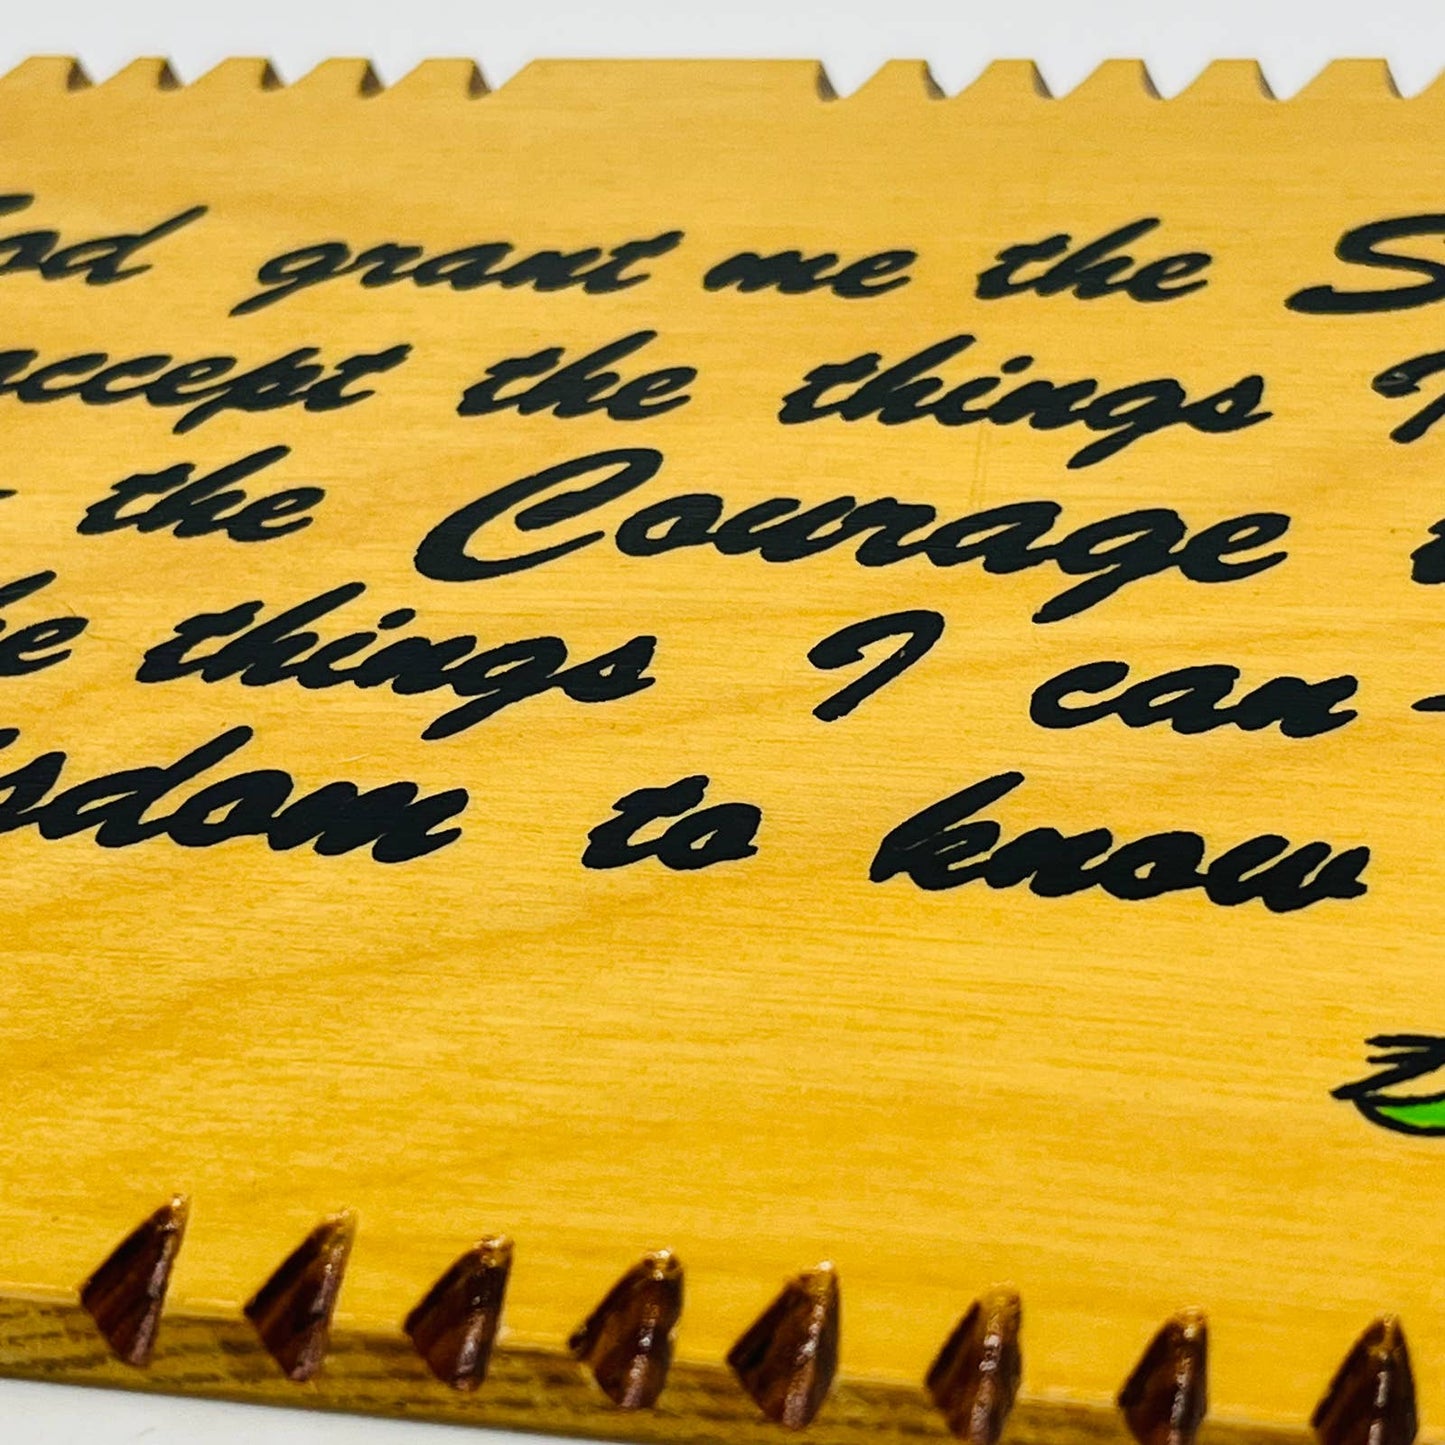 grant me the
accept the things
the Courage
things I can -
to know